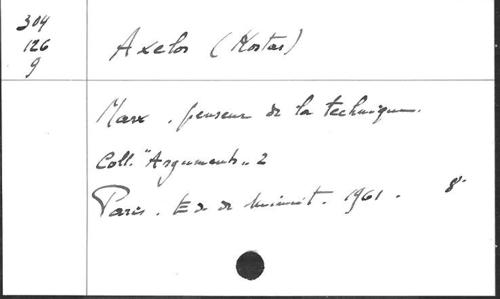 304
126
9
Axelos (Kostas)
Marx. penseur de la technique.
Coll. "Arguments" 2
Paris. Ed de Minuit. 1961. 8°